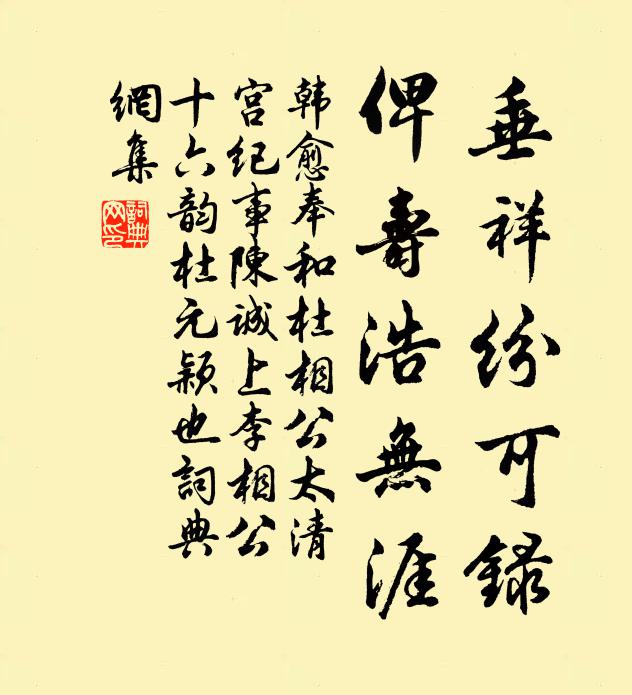 垂祥紛可録
俾壽浩無涯
韩愈奉和杜相公太清
宫纪事陳誠上李相公
十六韵杜元颖也詞典
網集
詞典网印